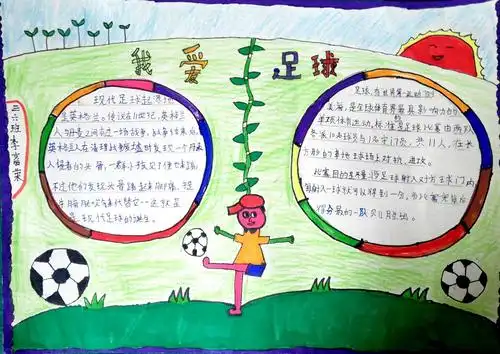 我爱足球
三六班李富荣
现代足球起源地
是英格兰。传说在11世纪,英格兰
人与丹麦之间有过一场战争,战争结束后,
英格兰人在清理战争废墟时发现一个丹麦
入侵者的头骨,一群小孩见了便也来踢,
不过他们发现头骨踢起来脚痛,于是
牛膀胱吹气来代替它——这就是
现代足球的诞生。
足球,有"世界第一运动"的
美誉,是全球体育界最具影响力的
单项体育运动。标准足球比赛由两队
各派10名球员与1名守门员,共11人,在长
方形的草地球场上对抗、进攻。
比赛目的是将足球射入对方球门内,
每射入一球就可以得到一分,当比赛完毕后
得分最多的一队则胜出。